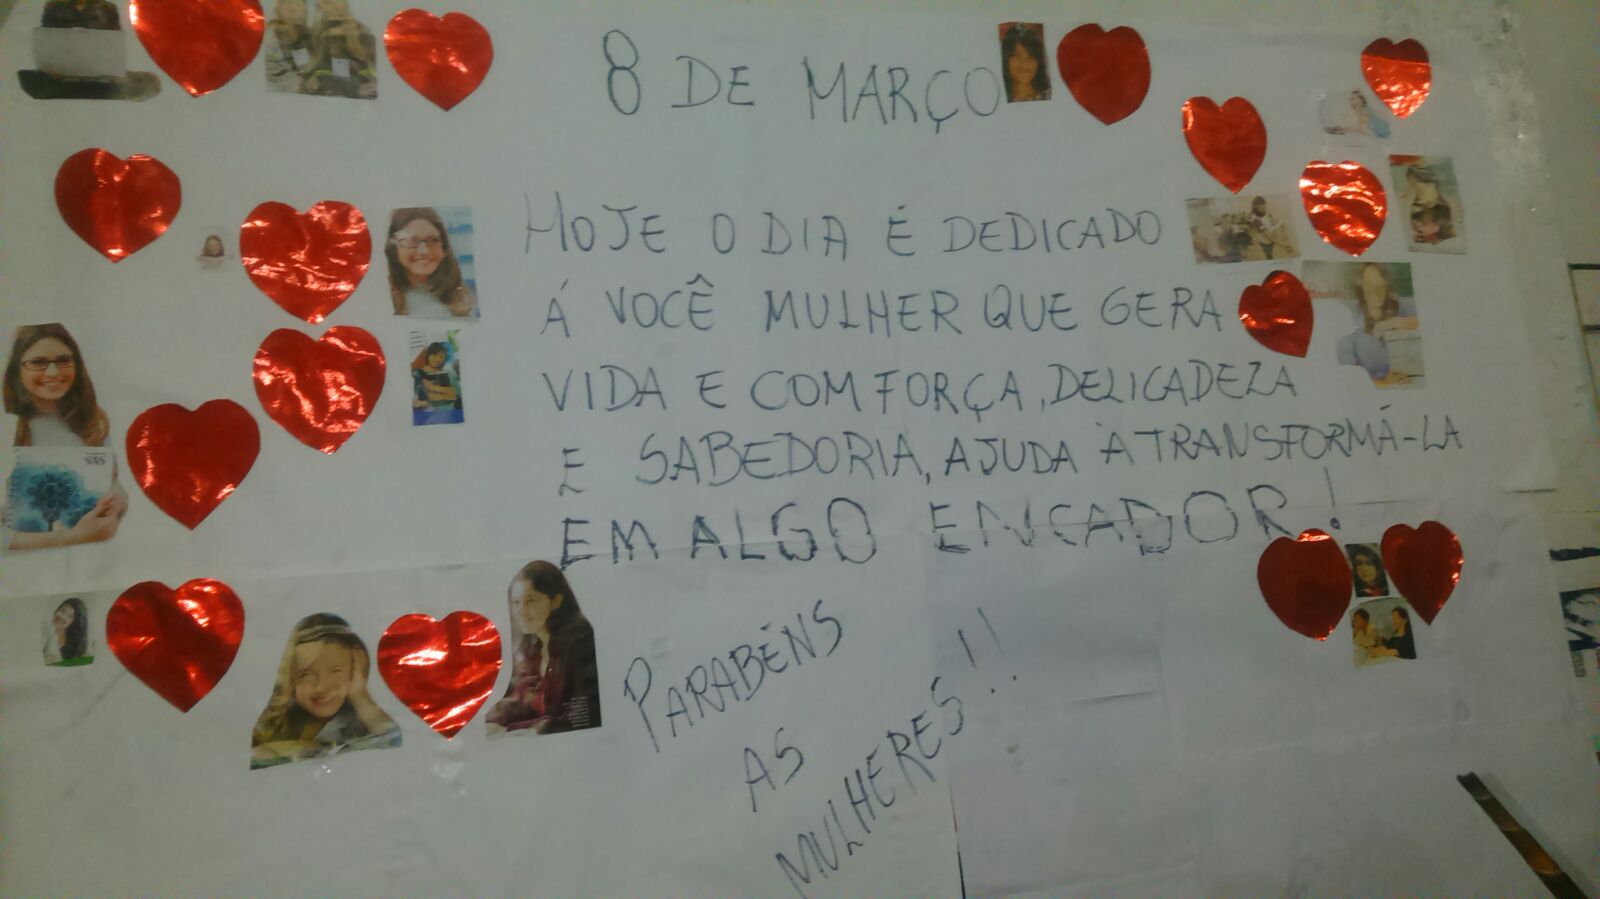 8 DE MARÇO
HOJE O DIA É DEDICADO
Á VOCÊ MULHER QUE GERA
VIDA E COM FORÇA, DELICADEZA
E SABEDORIA, AJUDA À TRANSFORMÁ-LA
EM ALGO ENCADOR!
PARABÉNS
AS
MULHERES!!
SAS